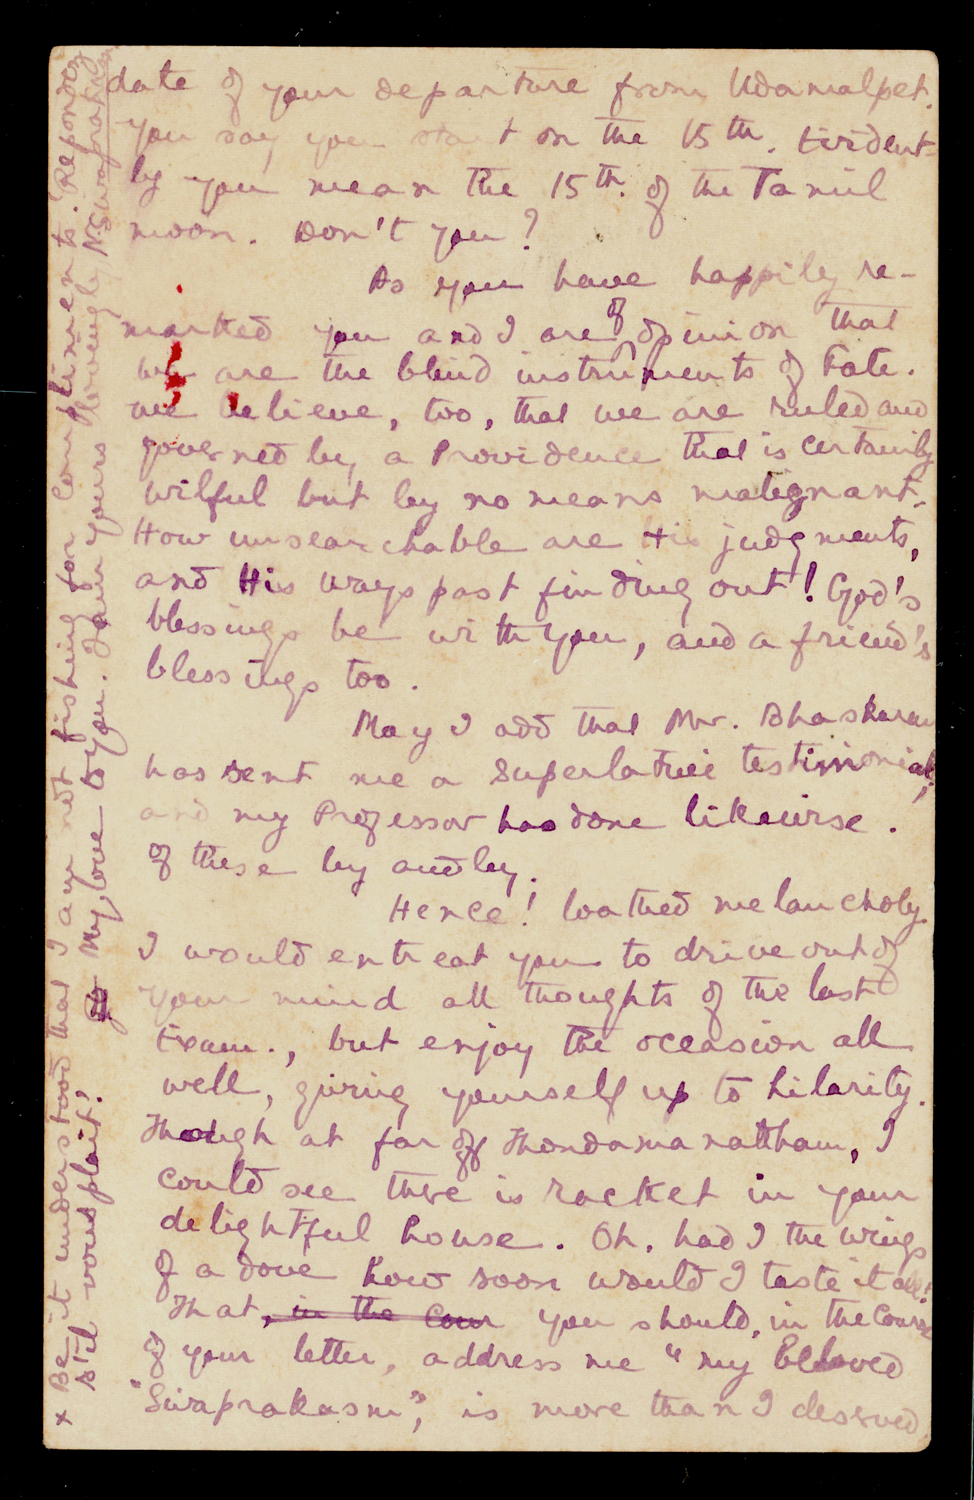 date of your departure from Udamalpet.
you say you start on the 15th. Evident-
ly you mean the 15th. of the Tamil
moon. Don't you?
As you have happily re-
marked you and I are of opinion that
we are the blind instruments of Fate.
we believe, too, that we are ruled and
governed by a Providence that is certainly
wilful but by no means malignant.
How unsearchable are His judgments,
and His ways past finding out! God's
blessings be with you, and a friend's
blessings too.
May I add that Mr. Bhaskaran
has sent me a superlative testimonial,
and my Professor has done likewise.
of these by and by.
Hence! loathed melancholy.
I would entreat you to drive out of
your mind all thoughts of the last
Exam., but enjoy the occasion all
well, giving yourself up to hilarity.
Though at far off Thondamanattham, I
could see there is racket in your
delightful house. Oh, had I the wings
of a dove how soon would I taste it all!
That, in the cour you should, in the course
of your letter, address me "my beloved
"Sivaprakasm", is more than I deserved.
x Be it understood that I am not fishing for compliments. Repondez
s'il vous plait! My love to you. I am yours lovingly N. Sivaprakasm